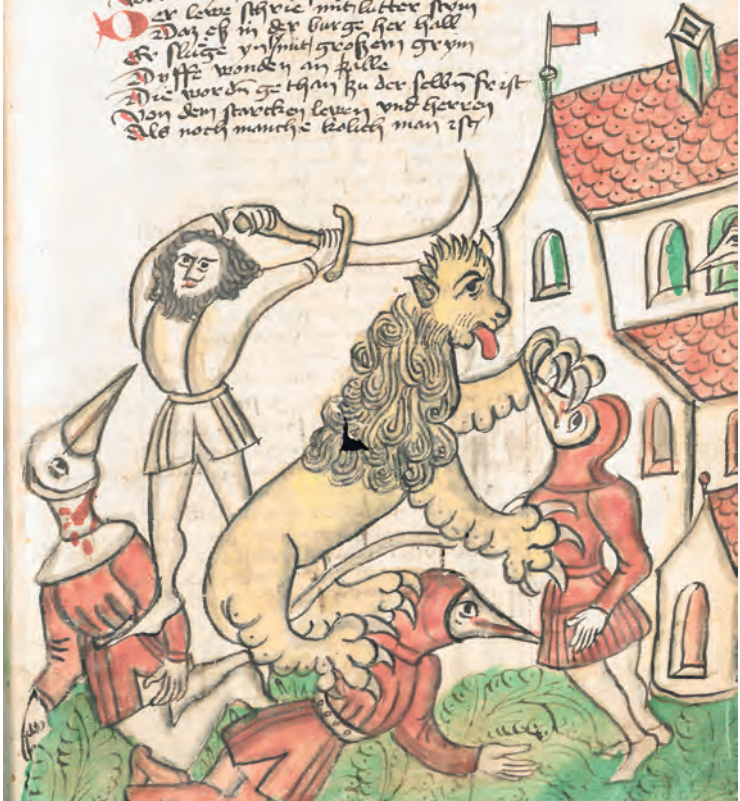 Der lewe schrie mit lutter stym
Daz eß in der burge her hall
Er sluge yn mit großem grym
Dyffe wonden an zalle
Die wordn gethan zu der selbn frist
Von dem starcken lewen und herren
Als noch manche kolich man ist